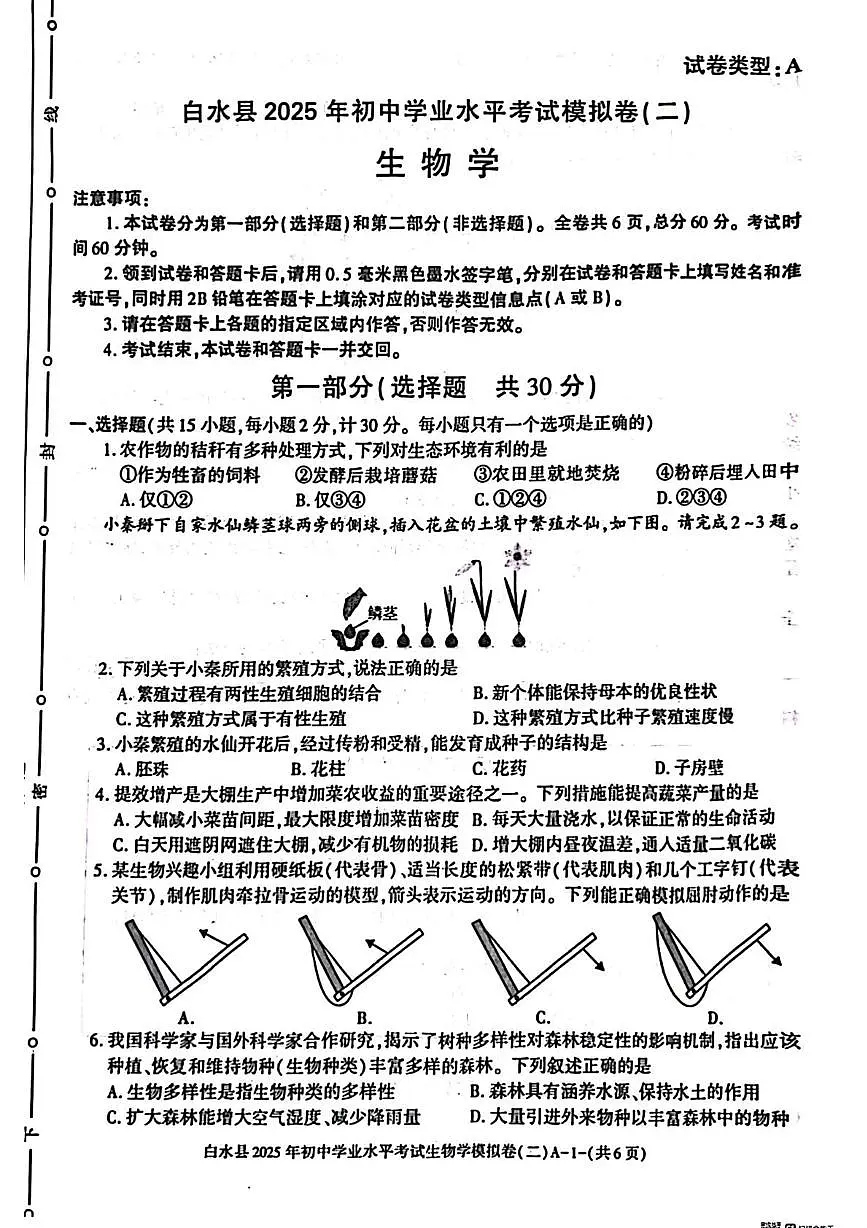 试卷类型:A
白水县2025年初中学业水平考试模拟卷(二)
生物学
注意事项:
1.本试卷分为第一部分(选择题)和第二部分(非选择题)。全卷共6页,总分60分。考试时
间60分钟。
2.领到试卷和答题卡后,请用0.5毫米黑色墨水签字笔,分别在试卷和答题卡上填写姓名和准
考证号,同时用2B铅笔在答题卡上填涂对应的试卷类型信息点(A或B)。
3.请在答题卡上各题的指定区域内作答,否则作答无效。
4.考试结束,本试卷和答题卡一并交回。
第一部分(选择题 共30分)
一、选择题(共15小题,每小题2分,计30分。每小题只有一个选项是正确的)
1.农作物的秸秆有多种处理方式,下列对生态环境有利的是
①作为牲畜的饲料 ②发酵后栽培蘑菇 ③农田里就地焚烧 ④粉碎后埋人田中
A.仅①② B.仅③④ C.①②④ D.②③④
小秦掰下自家水仙鳞茎球两旁的侧球,插入花盆的土壤中繁殖水仙,如下图。请完成2~3题。
鳞茎
2.下列关于小秦所用的繁殖方式,说法正确的是
A.繁殖过程有两性生殖细胞的结合 B.新个体能保持母本的优良性状
C.这种繁殖方式属于有性生殖 D.这种繁殖方式比种子繁殖速度慢
3.小秦繁殖的水仙开花后,经过传粉和受精,能发育成种子的结构是
A.胚珠 B.花柱 C.花药 D.子房壁
4.提效增产是大棚生产中增加菜农收益的重要途径之一。下列措施能提高蔬菜产量的是
A.大幅减小菜苗间距,最大限度增加菜苗密度 B.每天大量浇水,以保证正常的生命活动
C.白天用遮阴网遮住大棚,减少有机物的损耗 D.增大棚内昼夜温差,通人适量二氧化碳
5.某生物兴趣小组利用硬纸板(代表骨)、适当长度的松紧带(代表肌肉)和几个工字钉(代表
关节),制作肌肉牵拉骨运动的模型,箭头表示运动的方向。下列能正确模拟屈肘动作的是
A. B. C. D.
6.我国科学家与国外科学家合作研究,揭示了树种多样性对森林稳定性的影响机制,指出应该
种植、恢复和维持物种(生物种类)丰富多样的森林。下列叙述正确的是
A.生物多样性是指生物种类的多样性 B.森林具有涵养水源、保持水土的作用
C.扩大森林能增大空气湿度、减少降雨量 D.大量引进外来物种以丰富森林中的物种
白水县2025年初中学业水平考试生物学模拟卷(二)A-1-(共6页)
线
封
密
下